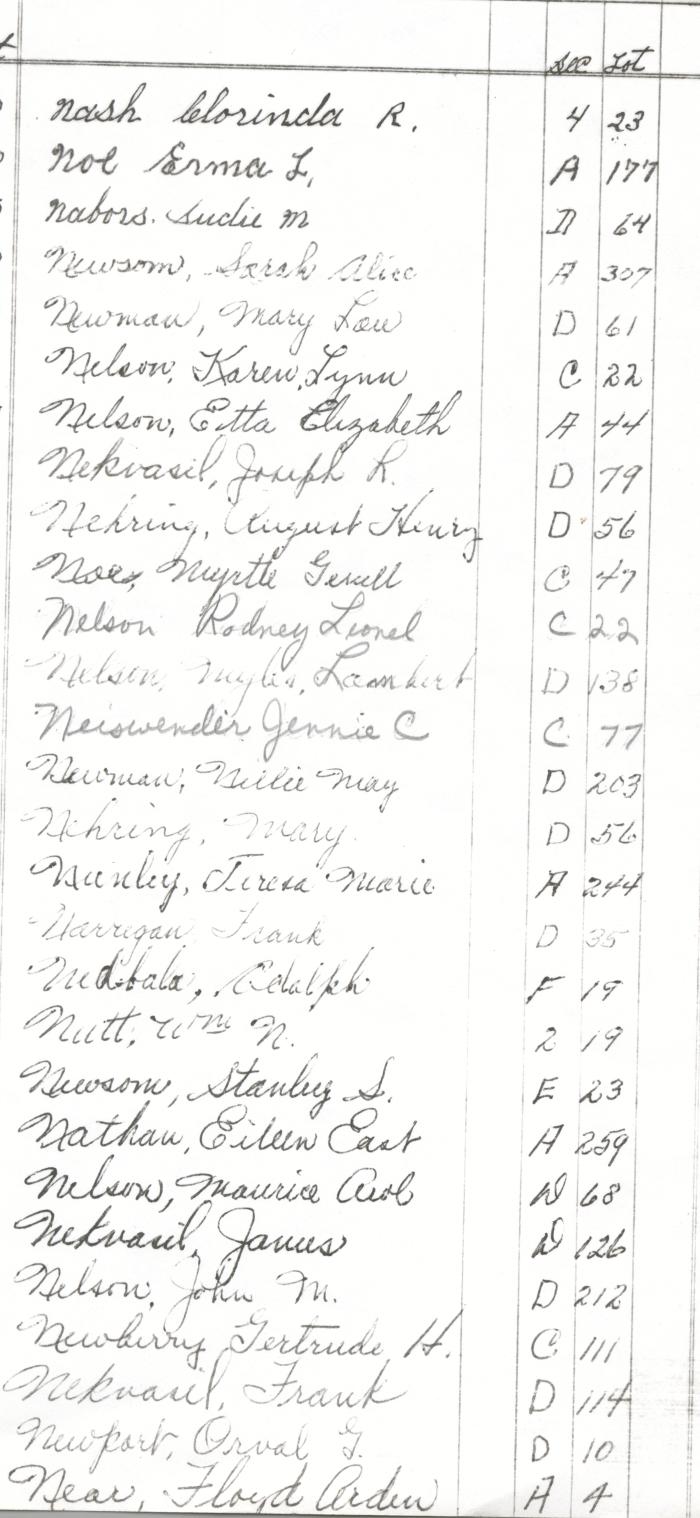 Sec Lot
Nash Clorinda R. 4 23
Noe Erma L. A 177
Nabors. Sudie M D 64
Newsom, Sarah Alice A 307
Newman, Mary Lou D 61
Nelson, Karen, Lynn C 22
Nelson, Etta Elizabeth A 44
Nekvasil, Joseph R. D 79
Nehring, August Henry D 56
Noe, Myrtle C 47
Nelson Rodney Lionel C 22
Nelson, Lambert D 138
Neiswender Jennie C C 77
Newman, Nellie May D 203
Nehring, Mary D 56
Nunley, Teresa Marie A 244
Narregan, Frank D 35
Nedbala, Adolph F 19
Nutt, Wm N. 2 19
Newsom, Stanley S. E 23
Nathan, Eileen East A 259
Nelson, Maurice D 68
Nekvasil, James D 126
Nelson, John M. D 212
Newberry Gertrude H. C 111
Nekvasil, Frank D 114
Newport, Orval G. D 10
Near, Floyd Arden A 4